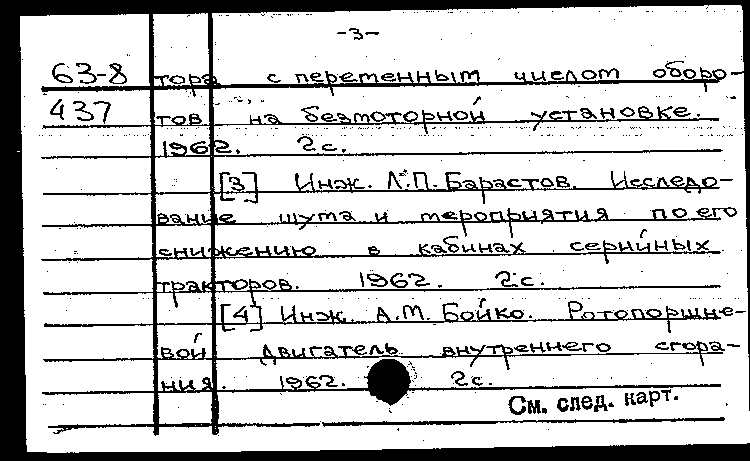 -3-
63-8 тора с переменным числом оборо-
437 тов на безмоторной установке.
1962. 2с.
[3] Инж. Л.П. Барастов. Исследо-
вание шума и мероприятия по его
снижению в кабинах серийных
тракторов. 1962. 2с.
[4] Инж. А.М. Бойко. Ротопоршне-
вой двигатель внутреннего сгора-
ния. 1962. 2с.
См. след. карт.